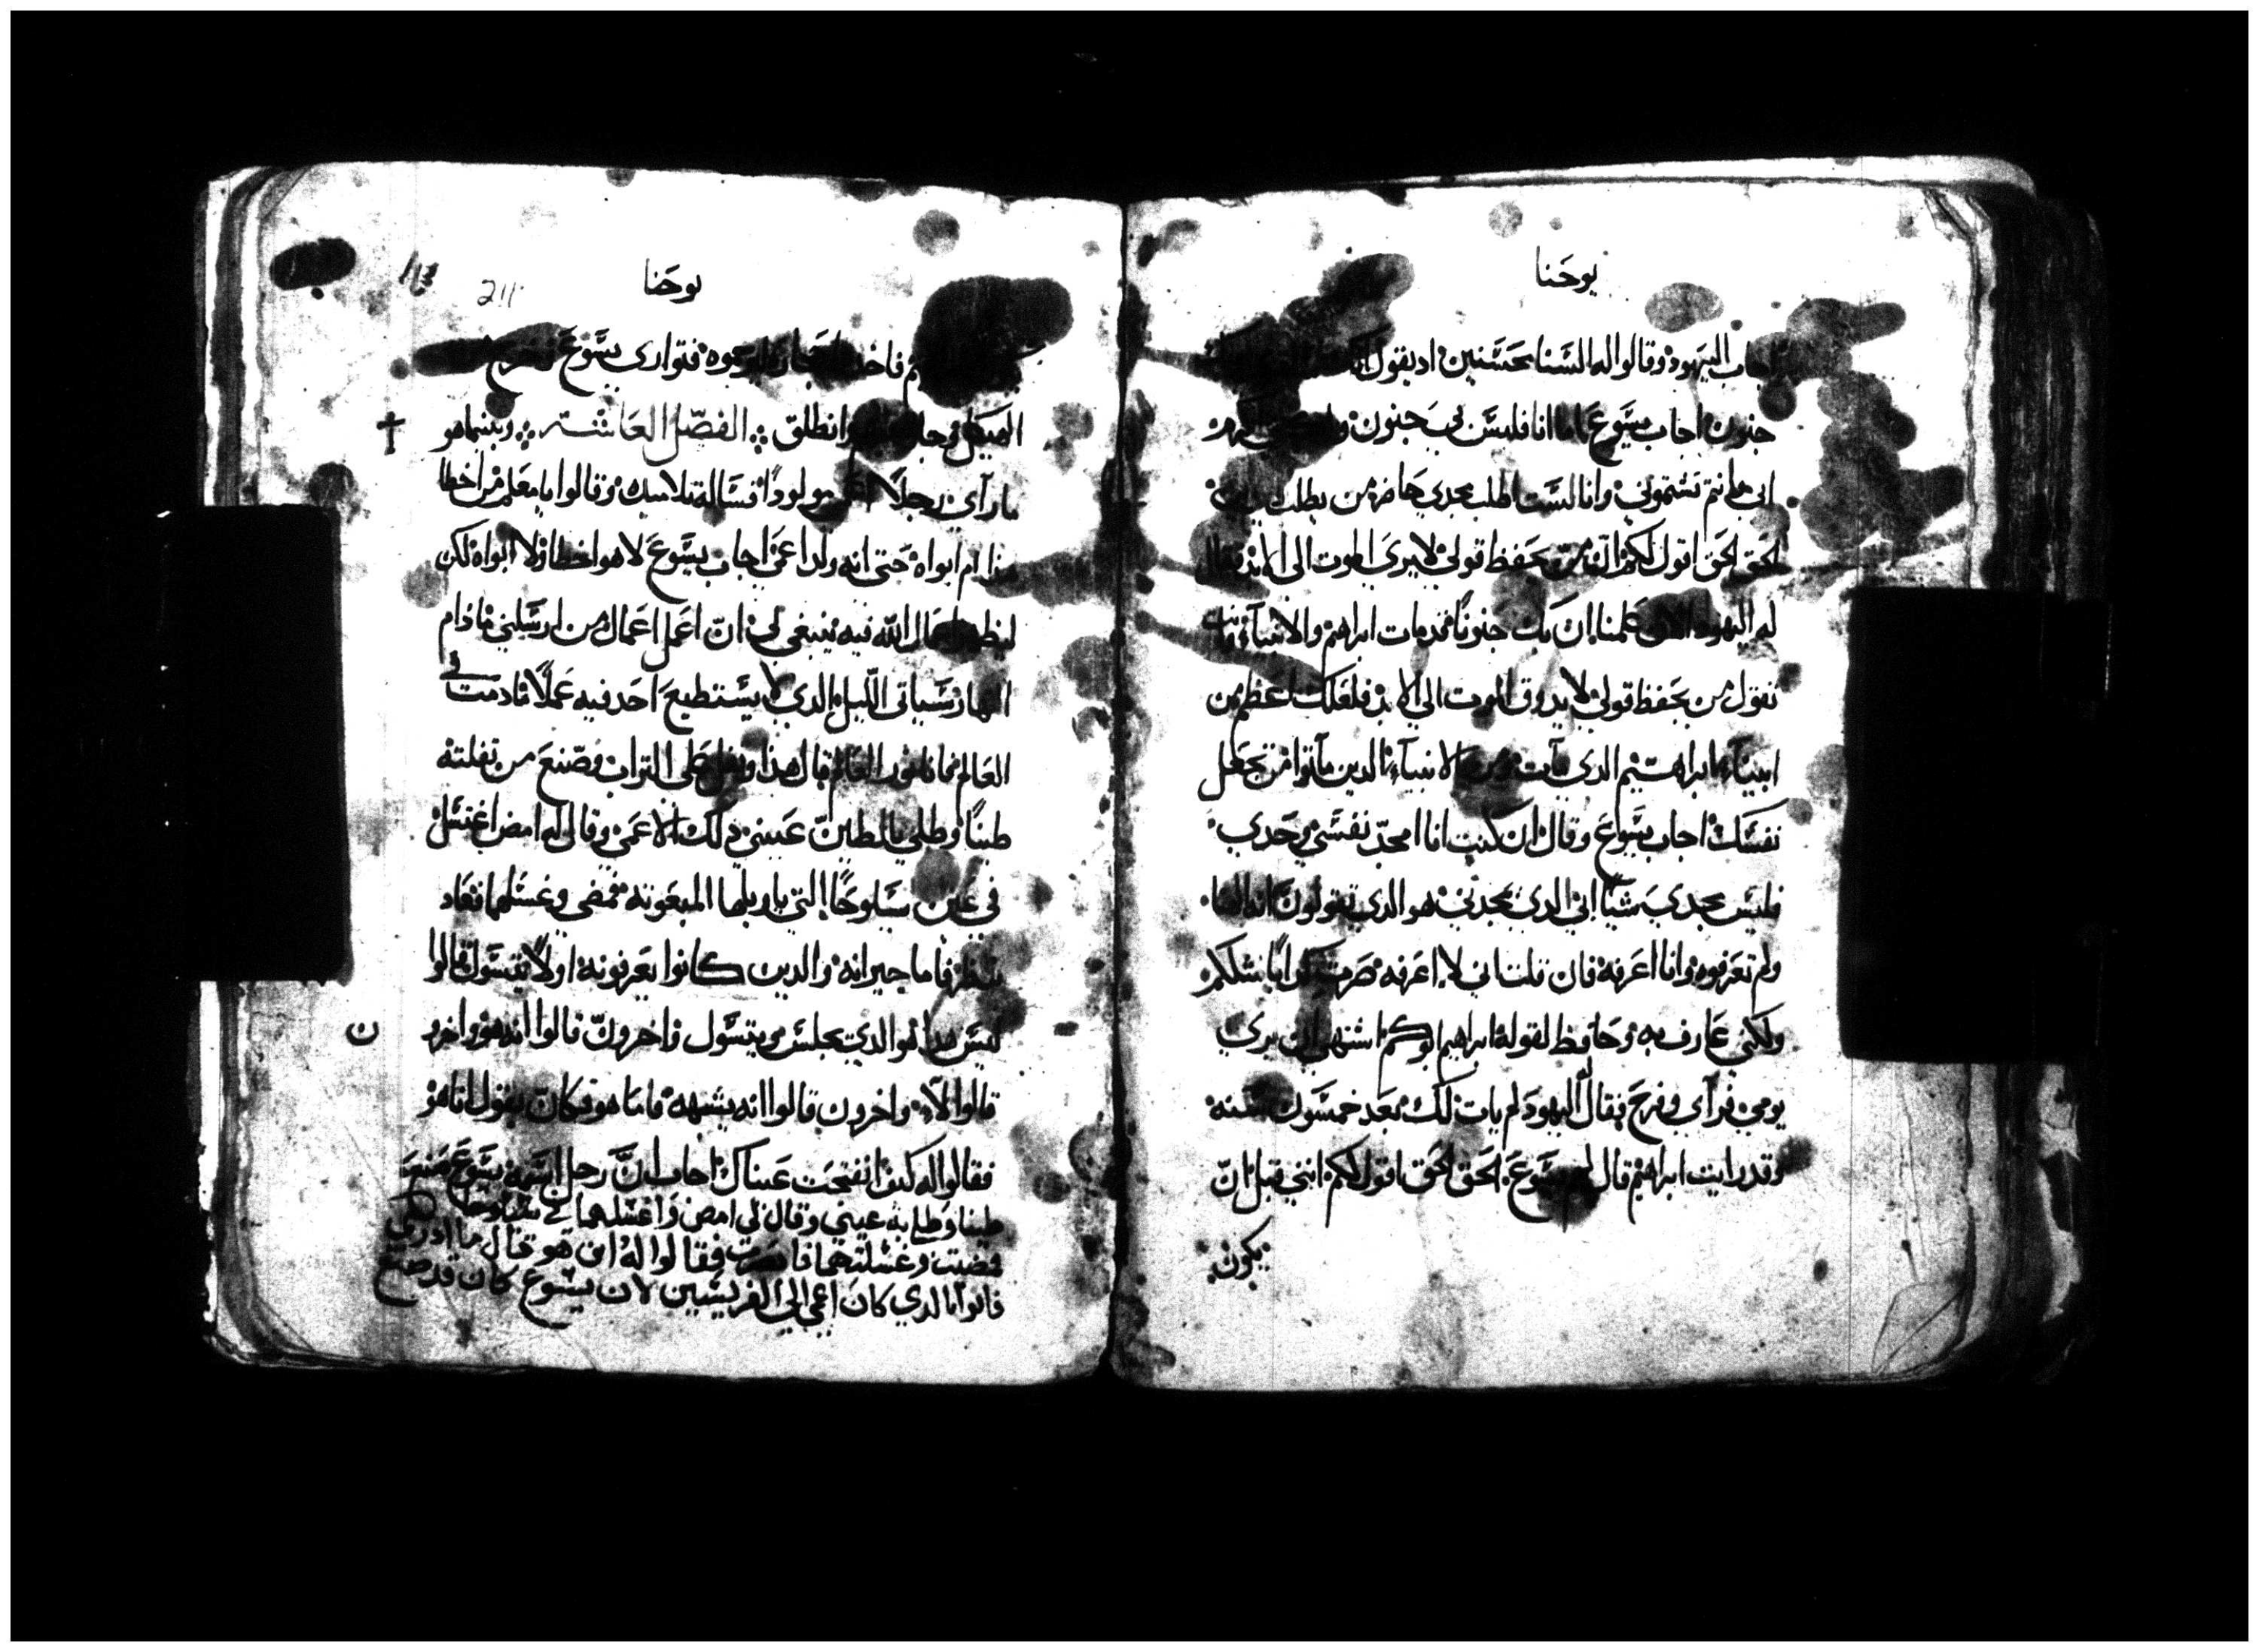 يوحنا
اجاب اليهود وقالوا له السنا محسنين اد يقول
جنون اجاب يسوع اما انا فليس لي جنون
ابي وانتم تشتموني وانا لست اطلب مجدي هاهنا من يطلب
الحق الحق اقول لكم ان من يحفظ قولي لا يري الموت الي الابد فقال
له اليهود الان علمنا ان بك جنونا قد مات ابراهيم والانبيآء وانت
تقول من يحفظ قولي لا يدوق الموت الي الابد فلعلك اعظم من
ابينآء ابراهيم الدي مآت ومن الانبيآء الدين مآتوا من تجعل
نفسك اجاب يسوع وقال ان كنت انا امجد نفسي وحدي
فليس مجدي شيا ابي الدي يمجدني هو الدي تقولون انه الهنا
ولم تعرفوه وانا اعرفه فان قلت اني لا اعرفه صرت كدابا شلكم
ولكني عارف به وحافظ لقوله ابراهيم ابوكم اشتهي ان يري
يومي فرآي وفرح فقال له اليهود لم يات لك بعد خمسون سنه
وقد رايت ابراهيم قال لهم يسوع الحق الحق اقول لكم انني قبل ان
يكون
يوحنا
211
فتواري يسوع
الهيكل وانطلق الفصل العاشر وبينما هو
مار رآي رجلا اعمي مولودا فساله تلاميده وقالوا يا معلم من اخطا
هذا ام ابواه حتي انه ولد اعمي اجاب يسوع لا هو اخطا ولا ابواه لكن
ليظهر اعمال الله فيه ينبغي لي ان اعمل اعمال من ارسلني ما دام
النهار سياتي الليل الدي لا يستطيع احد فيه عملا ما دمت في
العالم فانا نور العالم قال هدا وتفل علي التراب وصنع من تفلته
طينا وطلي بالطين عيني دلك الاعمي وقال له امض اغتسل
في عين سيلوحا التي تاويلها المبعوثه فمضي وغسلها فعاد
ينظر فاما جيرانه والدين كانوا يعرفونه اولا يتسول قالوا
اليس هدا هو الدي يجلس ويتسول واخرون قالوا انه هو واخر
ن
قالوا لآ واخرون قالوا انه يشبهه فاما هو فكان يقول انا هو
فقالوا له كيف انفتحت عيناك اجاب ان رجل اسمه يسوع صنع
طينا وطلي به عيني وقال لي امض واغسلهما في سيلوحا
فمضيت وغسلتهما فابصرت فقالوا له اين هو قال ما ادري
فاتوا بالدي كان اعمي الي الفريسين لان يسوع كان قد صنع